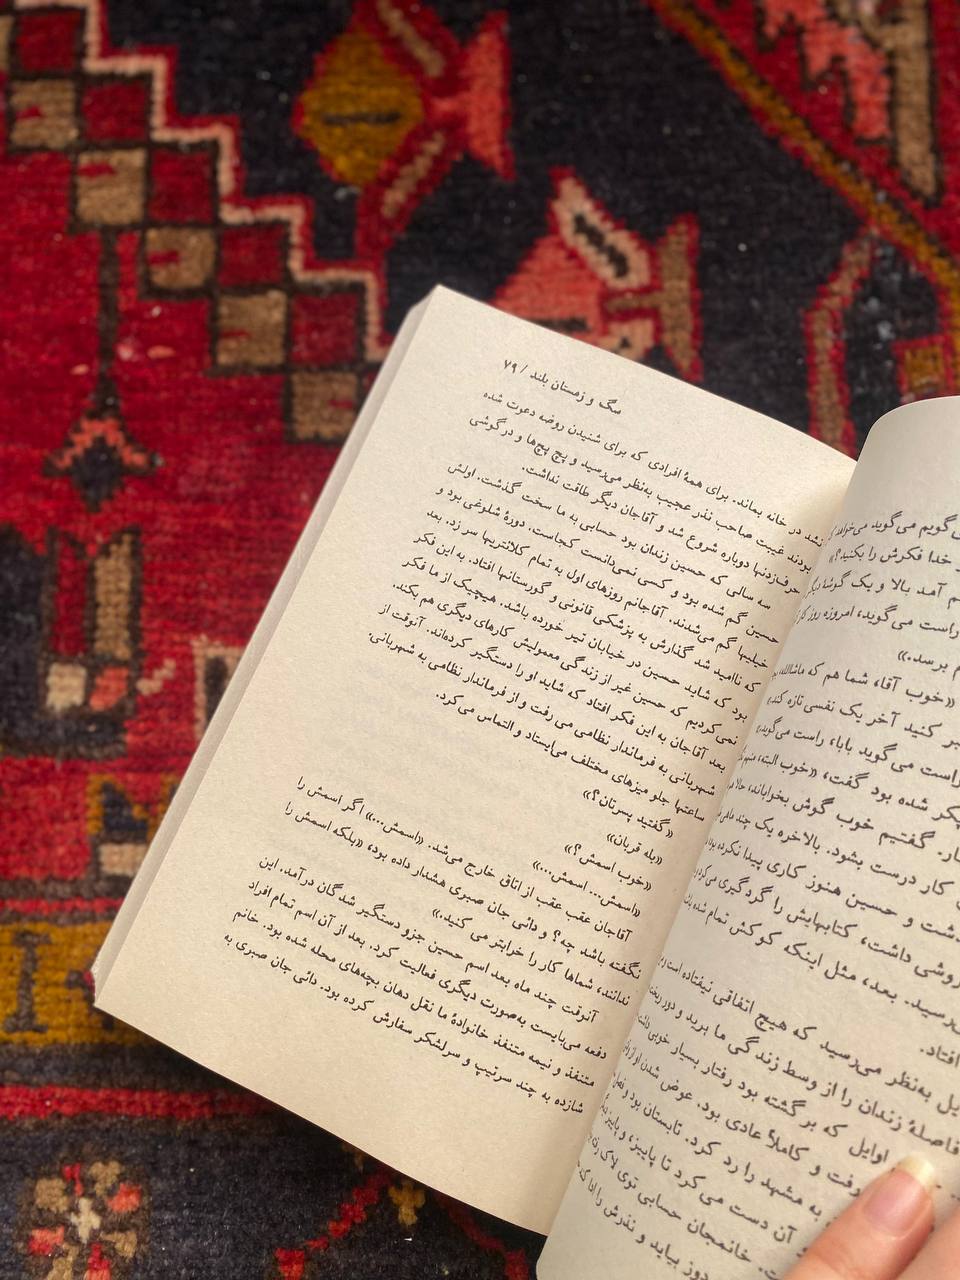 سگ و زمستان بلند / ۷۹
نشد در خانه بماند. برای همهٔ افرادی که برای شنیدن روضه دعوت شده
بودند غیبت صاحب نذر عجیب به‌نظر می‌رسید و پچ پچ‌ها و درگوشی
حرف‌زدنها دوباره شروع شد و آقاجان دیگر طاقت نداشت.
سه سالی که حسین زندان بود حسابی به ما سخت گذشت. اولش
حسین گم شده بود و کسی نمی‌دانست کجاست. دورهٔ شلوغی بود و
خیلیها گم می‌شدند. آقاجانم روزهای اول به تمام کلانتریها سر زد. بعد
که ناامید شد گذارش به پزشکی قانونی و گورستانها افتاد. به این فکر
بود که شاید حسین در خیابان تیر خورده باشد. هیچیک از ما فکر
نمی‌کردیم که حسین غیر از زندگی معمولیش کارهای دیگری هم بکند.
بعد آقاجان به این فکر افتاد که شاید او را دستگیر کرده‌اند. آنوقت از
شهربانی به فرماندار نظامی می رفت و از فرماندار نظامی به شهربانی.
ساعتها جلو میزهای مختلف می‌ایستاد و التماس می‌کرد.
«گفتید پسرتان؟»
«بله قربان»
«خوب اسمش؟»
«اسمش... اسمش...»
آقاجان عقب عقب از اتاق خارج می‌شد. «اسمش...» اگر اسمش را
نگفته باشد چه؟ و دائی جان صبری هشدار داده بود، «بلکه اسمش را
ندانند، شماها کار را خرابتر می کنید.»
آنوقت چند ماه بعد اسم حسین جزو دستگیر شدگان درآمد. این
دفعه می‌بایست به‌صورت دیگری فعالیت کرد. بعد از آن اسم تمام افراد
متنفذ و نیمه متنفذ خانوادهٔ ما نقل دهان بچه‌های محله شده بود. خانم
شازده به چند سرتیپ و سرلشکر سفارش کرده بود. دائی جان صبری به
گویم می‌گوید می‌خواهد
خدا فکرش را بکنید؟»
آمد بالا و یک گوشا
راست می گوید، امروزه روز
برسد.»
«خوب آقا، شما هم که ماشاالله،
کنید آخر یک نفسی تازه کند.»
راست می گوید بابا، راست می‌گوید.»
شده بود گفت، «خوب البته،
گفتیم خوب گوش بخواباند، حالا
کار درست بشود. بالاخره یک چند ماهی
و حسین هنوز کاری پیدا نکرده بود
داشت، کتابهایش را گردگیری می‌کرد
بعد، مثل اینکه کوکش تمام شده
افتاد.
به‌نظر می‌رسید که هیچ اتفاقی نیفتاده است
فاصلهٔ زندان را از وسط زندگی ما برید و دور
اوایل که بر گشته بود رفتار بسیار خوبی
و کاملاً عادی بود. عوض شدن او از
به مشهد را رد کرد. تابستان بود و
آن دست می کرد تا پاییز، و پاییز
خانمجان حسابی توی لاک
بیاید و نذرش را ادا